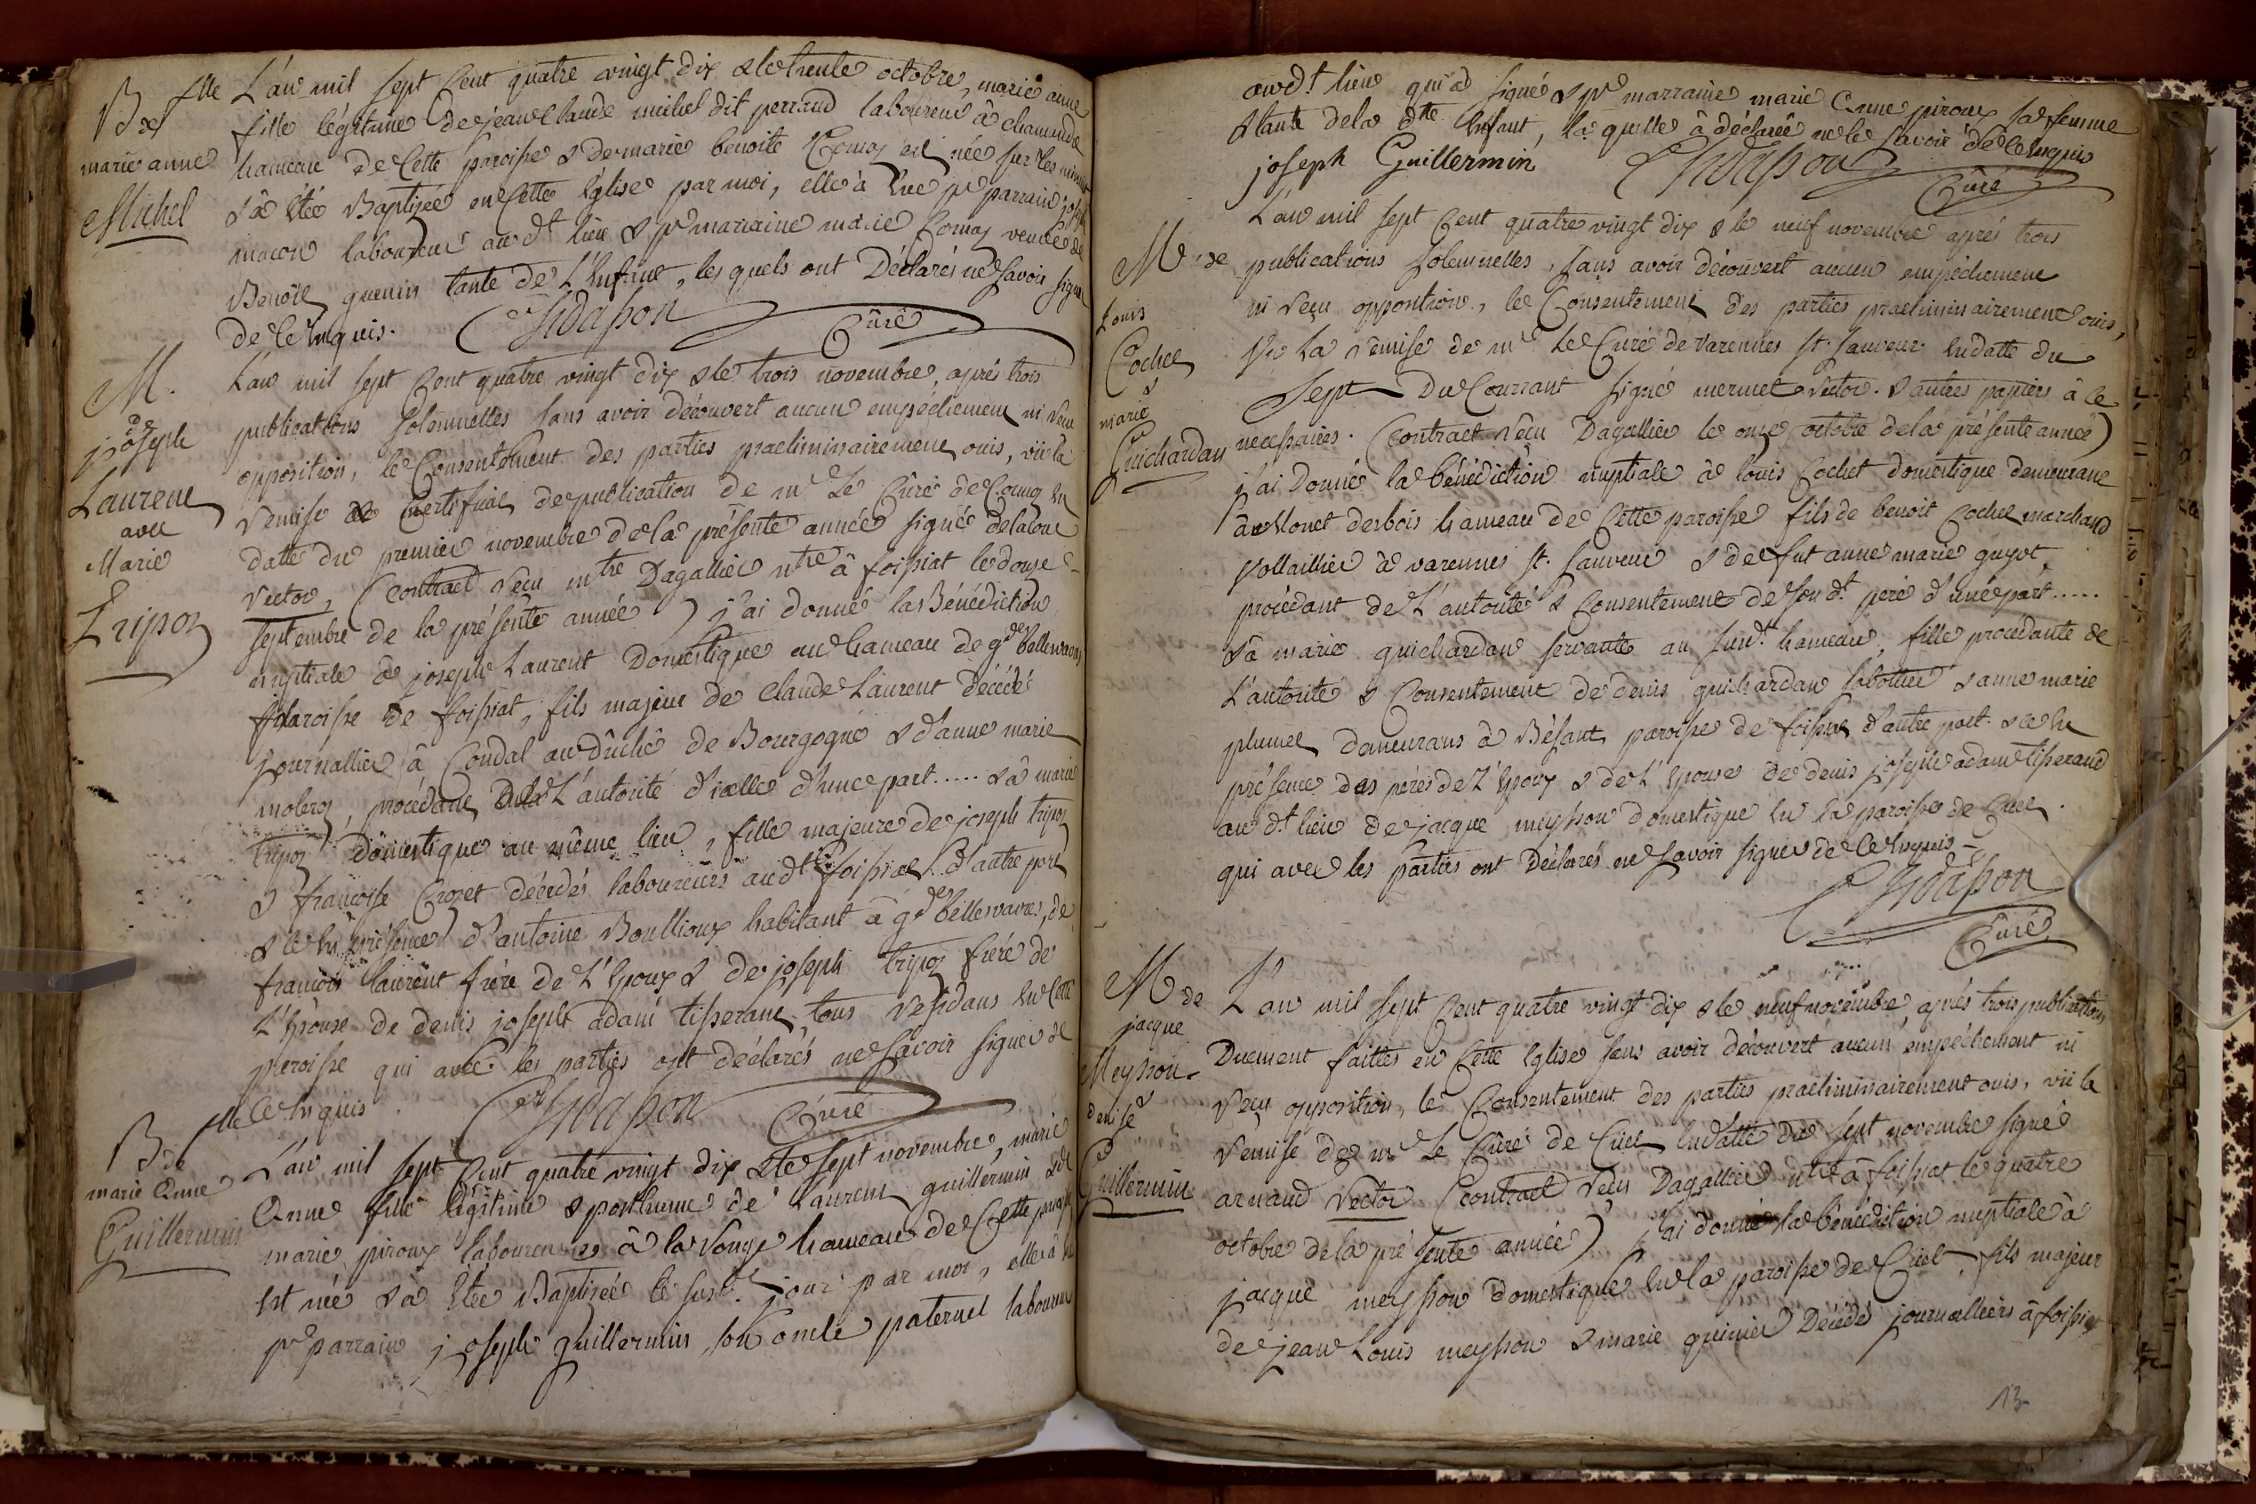 B de
marie anne
Michel
fille L'an mil sept Cent quatre vingt dix & le trente octobre, marie anne
fille légitime de jean Claude michel dit perraud laboureur à chamande
hameau de Cette paroisse & de marie benoite Comas est née sur les minuit
& a été Baptisée en Cette Eglise par moi, elle à eue pr parrain joseph
macon laboureur au dt lieu & pr marraine marie Comas veuve de
Benoit guenin tante de L'Enfant, les quels ont Déclarés ne savoir signer
de Ce Enquis.
Curé
M.
de
joseph
Laurent
avec
Marie
Tripoz
L'an mil sept Cent quatre vingt dix & le trois novembre, aprés trois
publications solemnelles sans avoir découvert aucun empéchement ni reçu
opposition, le Consentement des parties praeliminairement ouis, vû la
remise de Certificat de publication de mr Le Curé de Cormoz En
datte du premier novembre de la présente année signé delatour
rector, (Contract reçu mtre Dagallier ntre à foissiat le douze
septembre de la présente année) j'ai donné la Bénédiction
nuptiale à joseph Laurent Domestique au hameau de gde Bellevavres
paroisse de foissiat, fils majeur de Claude Laurent décédé
journallier à Condal au dûché de Bourgogne & d'anne marie
moleroz, procédant de L'autorité d'icelle d'une part..... & à marie
tripoz Domestique au même lieu, fille majeure de joseph tripoz
& françoise Crozet décédés laboureurs au dt foissiat. d'autre part
& ce En présence d'antoine Boullioux habitant à gde Bellevavres, de
francois laurent frére de L'Epoux & de joseph tripoz frére de
L'Epouse de denis joseph adam tisserant, tous residans En Cette
paroisse qui avec les parties ont déclarés ne savoir signer de
Ce Enquis
Curé
B de
marie Anne
Guillermin
fille L'an mil sept Cent quatre vingt dix & le sept novembre, marie
Anne fille légitime & posthume de Laurent guillermin & de
marie piroux laboureurs à la Vouge hameau de Cette paroisse
Est née & a Etée Baptisée le susdt jour par moi, elle à eu
pr parrain joseph guillermin son oncle paternel laboureur
au dt lieu qui a signé & pr marraine marie Anne piroux sa femme
& tante de la dtte Enfant, la quelle à déclarée ne le savoir de Ce Enquis
joseph Guillermin
Curé
M de
Louis
Cochet
&
marie
Guichardan
L'an mil sept Cent quatre vingt dix & le neuf novembre aprés trois
publications solemnelles, sans avoir découvert aucun empéchement
ni reçu opposition, le Consentement des parties praeliminairement ouis,
Vu La remise de mr Le Curé de Varennes St. Sauveur En datte du
Sept Du Courrant signé mermet rector. & autres papiers à Ce
necessaires. (Contract reçu Dagallier le onze octobre de la présente année)
j'ai Donné la bénédiction nuptiale à louis Cochet domestique demeurant
au Monet desbois hameau de Cette paroisse fils de benoit Cochet marchand
vollaillier à varennes St. Sauveur & de fut anne marie guyot,
procédant de L'autorité & Consentement de son dt pere d'une part.....
& à marie guichardan servante au susdt hameau, fille procedante de
L'autorité & Consentement de denis guichardan sabottier & anne marie
plumet demeurans à Bésant paroisse de foissiat d'autre part & ce En
présence des péres de L'Epoux & de L'Epouse de denis joseph adam tisserand
au dt lieu de jacque meysson domestique En la paroisse de Cuet.
qui avec les parties ont Déclarés ne savoir signer de Ce Enquis
Curé
M de
jacque
Meysson
denise
Guillermin
L'an mil sept Cent quatre vingt dix & le neuf novembre, aprés trois publications
Duement faittes en Cette Eglise sans avoir découvert aucun empéchement ni
reçu opposition, le Consentement des parties praeliminairement ouis, vû la
remise de mr Le Curé de Cuet En datte du sept novembre signé
arnaud rector (Contract reçu Dagallier ntre à foissiat le quatre
octobre de la présente année) j'ai donné la bénédiction nuptiale à
jacque meysson domestique En la paroisse de Cuet, fils majeur
de jean Louis meysson & marie guinier Décédés journalliers à foissiat
13